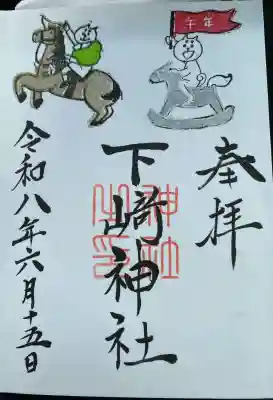 午年
奉拝
下崎神社
神社之印
令和八年六月十五日